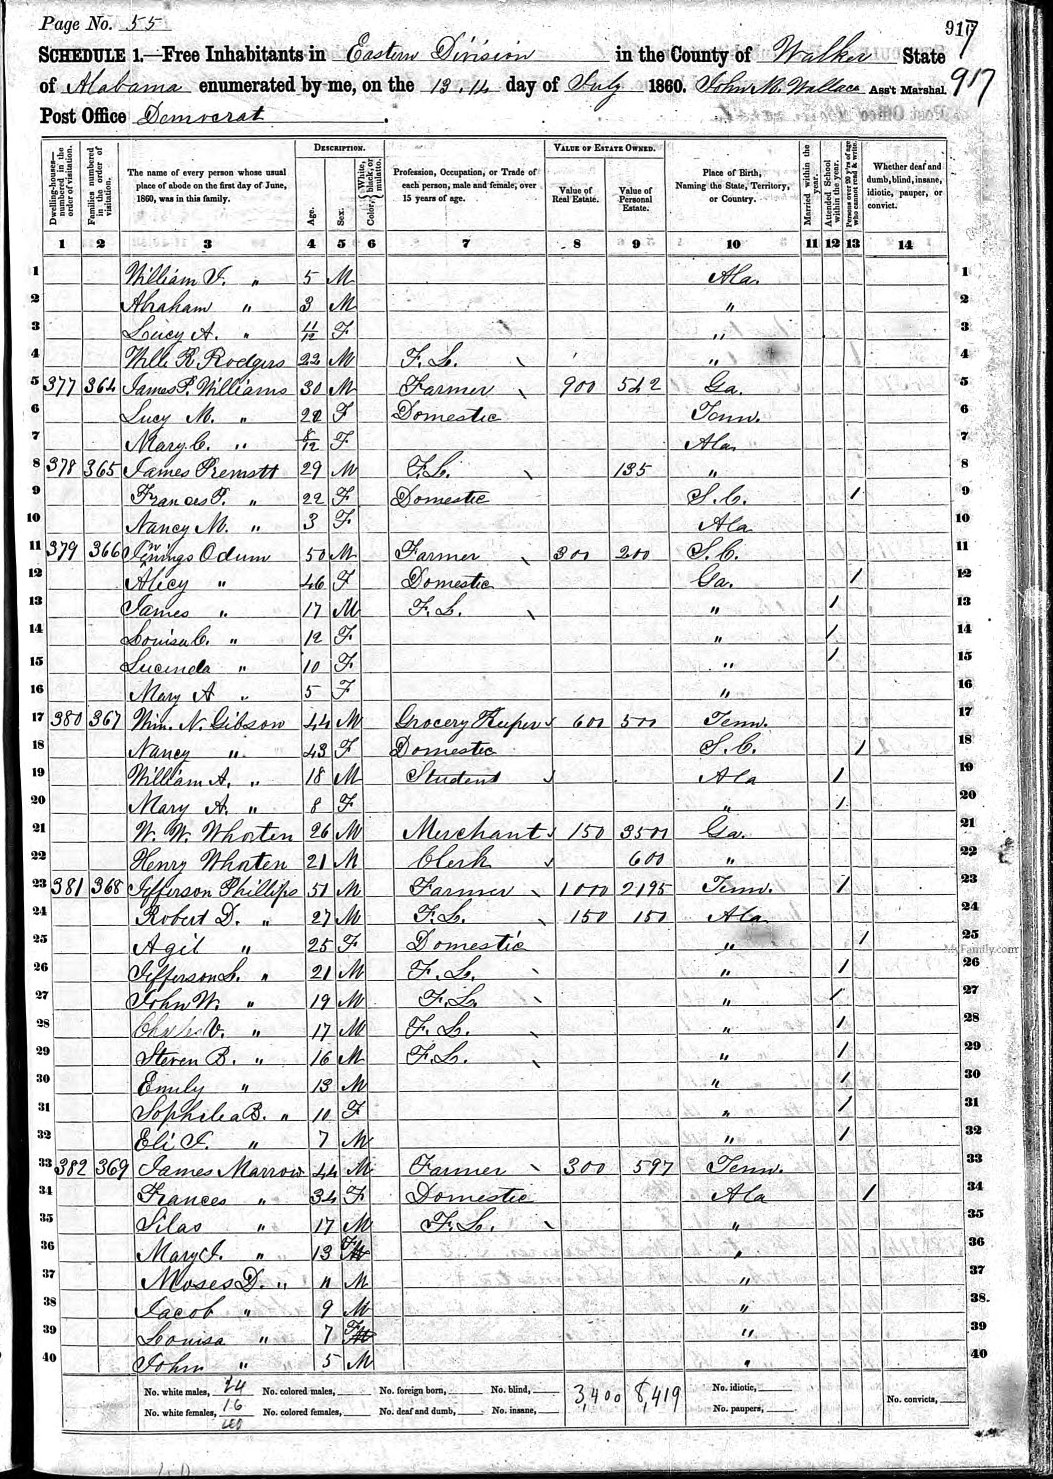 Page No. 55
917
SCHEDULE 1.—Free Inhabitants in Eastern Division in the County of Walker State
of Alabama enumerated by me, on the 13.14 day of July 1860. John M. Wallace Ass't Marshal. 917
Post Office Democrat.
Dwelling-houses—numbered in the order of visitation. Families numbered in the order of visitation. The name of every person whose usual place of abode on the first day of June, 1860, was in this family. DESCRIPTION. Age. Sex. Color, White, black, or mulatto. Profession, Occupation, or Trade of each person, male and female, over 15 years of age. VALUE OF ESTATE OWNED. Value of Real Estate. Value of Personal Estate. Place of Birth, Naming the State, Territory, or Country. Married within the year. Attended School within the year. Persons over 20 years of age who cannot read & write. Whether deaf and dumb, blind, insane, idiotic, pauper, or convict.
1 2 3 4 5 6 7 8 9 10 11 12 13 14
1 William J. " 5 M Ala. 1
2 Abraham " 3 M " 2
3 Lucy A. " 11/12 F " 3
4 Rodgers 22 M F. L. " 4
5 377 364 James P. Williams 30 M Farmer 900 542 Ga. 5
6 Lucy M. " 22 F Domestic Tenn. 6
7 Mary C. " /12 F Ala. 7
8 378 365 James 29 M F.L. 135 " 8
9 Frances P. " 22 F Domestic S.C. / 9
10 Nancy M. " 3 F Ala 10
11 379 366 Odum 50 M Farmer 300 200 S.C. 11
12 Alicy " 46 F Domestic Ga. / 12
13 James " 17 M F. L. " / 13
14 Louisa C. " 12 F " / 14
15 Lucinda " 10 F " / 15
16 Mary A " 5 F " 16
17 380 367 Wm. N. Gibson 44 M Grocery Keeper 600 500 Tenn. 17
18 Nancy " 43 F Domestic S.C. / 18
19 William A. " 18 M Student Ala / 19
20 Mary A. " 8 F " / 20
21 W. W. Whorten 26 M Merchant 150 3500 Ga. 21
22 Henry Whorten 21 M Clerk 600 " 22
23 381 368 Jefferson Phillips 51 M Farmer 1000 2195 Tenn. / 23
24 Robert D. " 27 M F.L. 150 150 Ala 24
25 Agil " 25 F Domestic " / 25
26 Jefferson L. " 21 M F. L. " / 26
27 John W. " 19 M F.L. " / 27
28 V. " 17 M F. L. " / 28
29 Steven B. " 16 M F.L. " / 29
30 Emily " 13 M " / 30
31 B. " 10 F " / 31
32 Eli J. " 7 M " / 32
33 382 369 James Marrow 44 M Farmer 300 597 Tenn. 33
34 Frances " 34 F Domestic Ala / 34
35 Silas " 17 M F. L. " 35
36 Mary J. " 13 F " 36
37 Moses D. " 11 M " 37
38 Jacob " 9 M " 38.
39 Louisa " 7 F " 39
40 John " 5 M " 40
No. white males, 24 No. colored males, No. foreign born, No. blind, 3,400 8,419 No. idiotic, No. convicts,
No. white females, 16 No. colored females, No. deaf and dumb, No. insane, No. paupers,
40
MyFamily.com